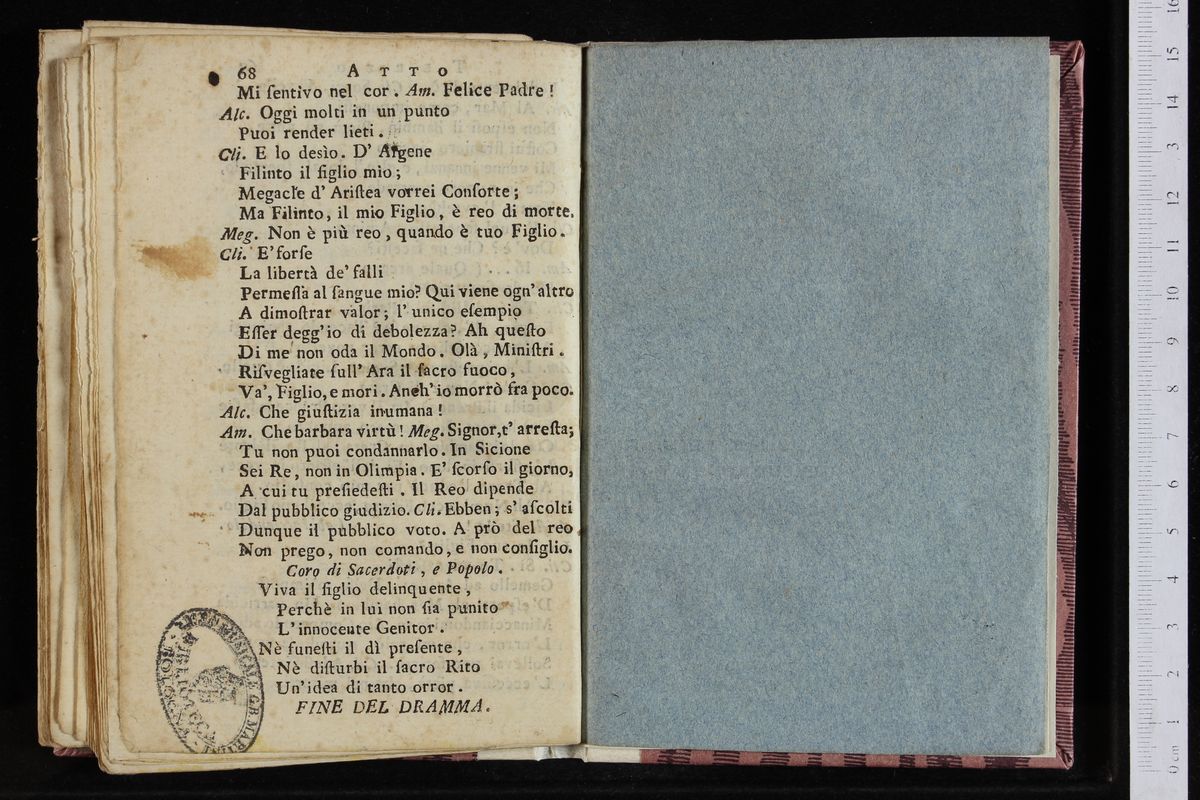 68 ATTO
Mi ſentivo nel cor. Am. Felice Padre!
Alc. Oggi molti in un punto
Puoi render lieti.
Cli. E lo desìo. D' Argene
Filinto il figlio mio;
Megacle d' Ariſtea vorrei Conſorte;
Ma Filinto, il mio Figlio, è reo di morte.
Meg. Non è più reo, quando è tuo Figlio.
Cli. E' forſe
La libertà de' falli
Permeſſa al ſangue mio? Qui viene ogn' altro
A dimoſtrar valor; l' unico eſempio
Eſſer degg' io di debolezza? Ah queſto
Di me non oda il Mondo. Olà, Miniſtri.
Riſvegliate ſull' Ara il ſacro fuoco,
Va', Figlio, e mori. Anch' io morrò fra poco.
Alc. Che giuſtizia inumana!
Am. Che barbara virtù! Meg. Signor, t' arreſta;
Tu non puoi condannarlo. In Sicione
Sei Re, non in Olimpia. E' ſcorſo il giorno,
A cui tu preſiedeſti. Il Reo dipende
Dal pubblico giudizio. Cli. Ebben; s' aſcolti
Dunque il pubblico voto. A prò del reo
Non prego, non comando, e non conſiglio.
Coro di Sacerdoti, e Popolo.
Viva il figlio delinquente,
Perchè in lui non ſia punito
L' innocente Genitor.
Nè funeſti il dì preſente,
Nè diſturbi il ſacro Rito
Un' idea di tanto orror.
FINE DEL DRAMMA.
MUSICALE
BIBLIOTECA
0 cm 1 2 3 4 5 6 7 8 9 10 11 12 3 14 15 16